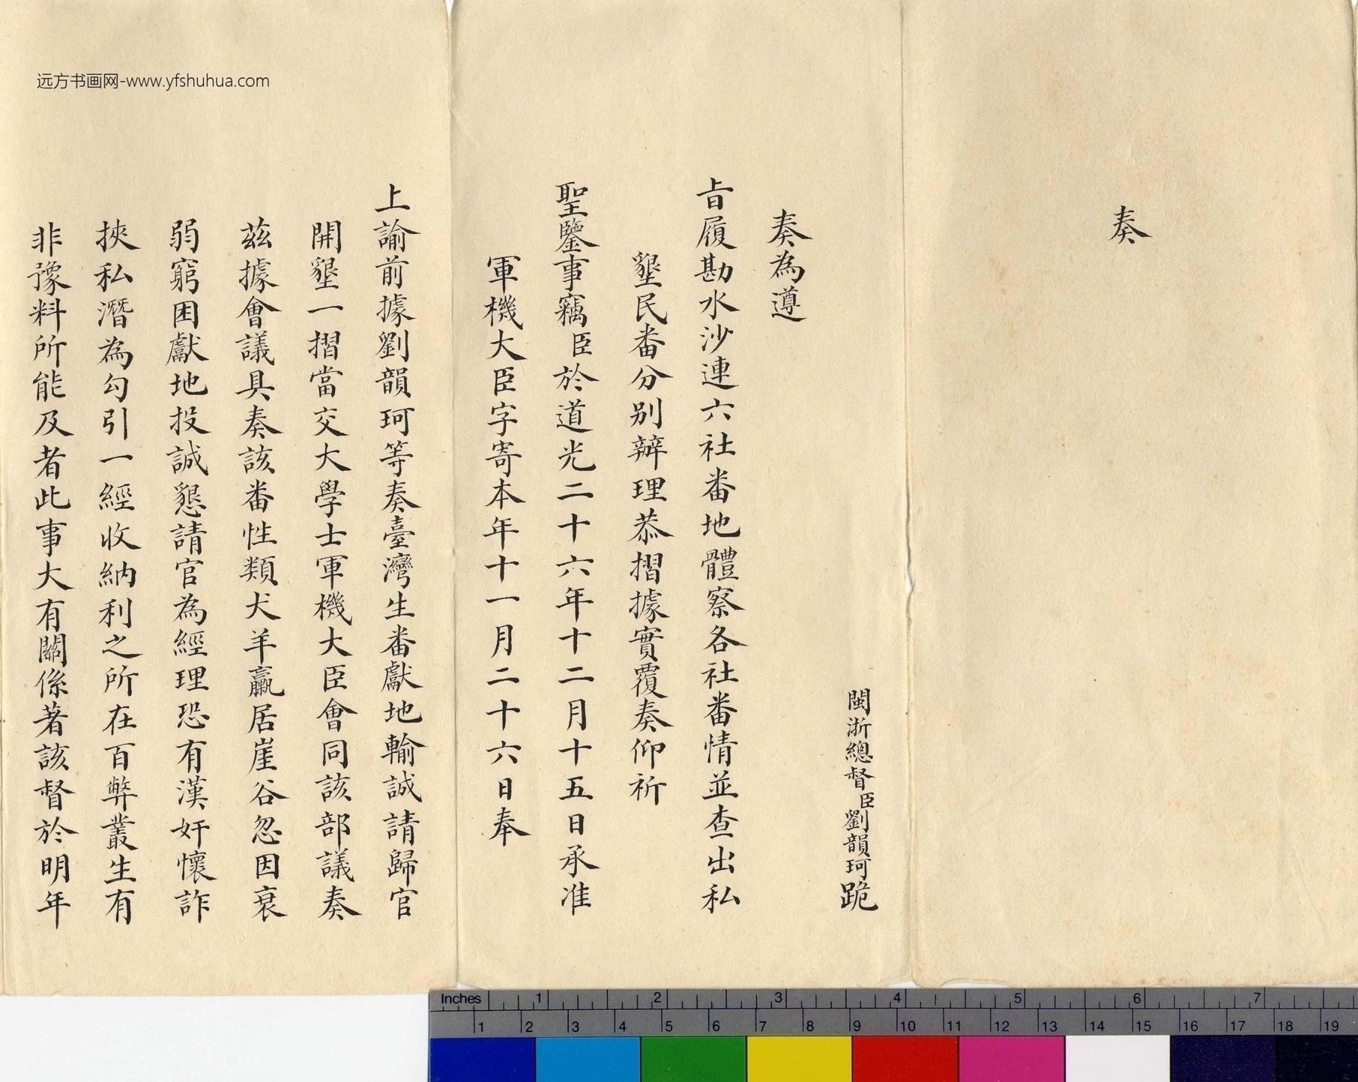 奏
閩浙總督臣劉韻珂跪
奏為遵
旨履勘水沙連六社番地體察各社番情並查出私
墾民番分別辦理恭摺據實覆奏仰祈
聖鑒事竊臣於道光二十六年十二月十五日承准
軍機大臣字寄本年十一月二十六日奉
上諭前據劉韻珂等奏臺灣生番獻地輸誠請歸官
開墾一摺當交大學士軍機大臣會同該部議奏
茲據會議具奏該番性類犬羊羸居崖谷忽因衰
弱窮困獻地投誠懇請官為經理恐有漢奸懷詐
挾私潛為勾引一經收納利之所在百弊叢生有
非豫料所能及者此事大有關係著該督於明年
远方书画网-www.yfshuhua.com
Inches 1 2 3 4 5 6 7
1 2 3 4 5 6 7 8 9 10 11 12 13 14 15 16 17 18 19